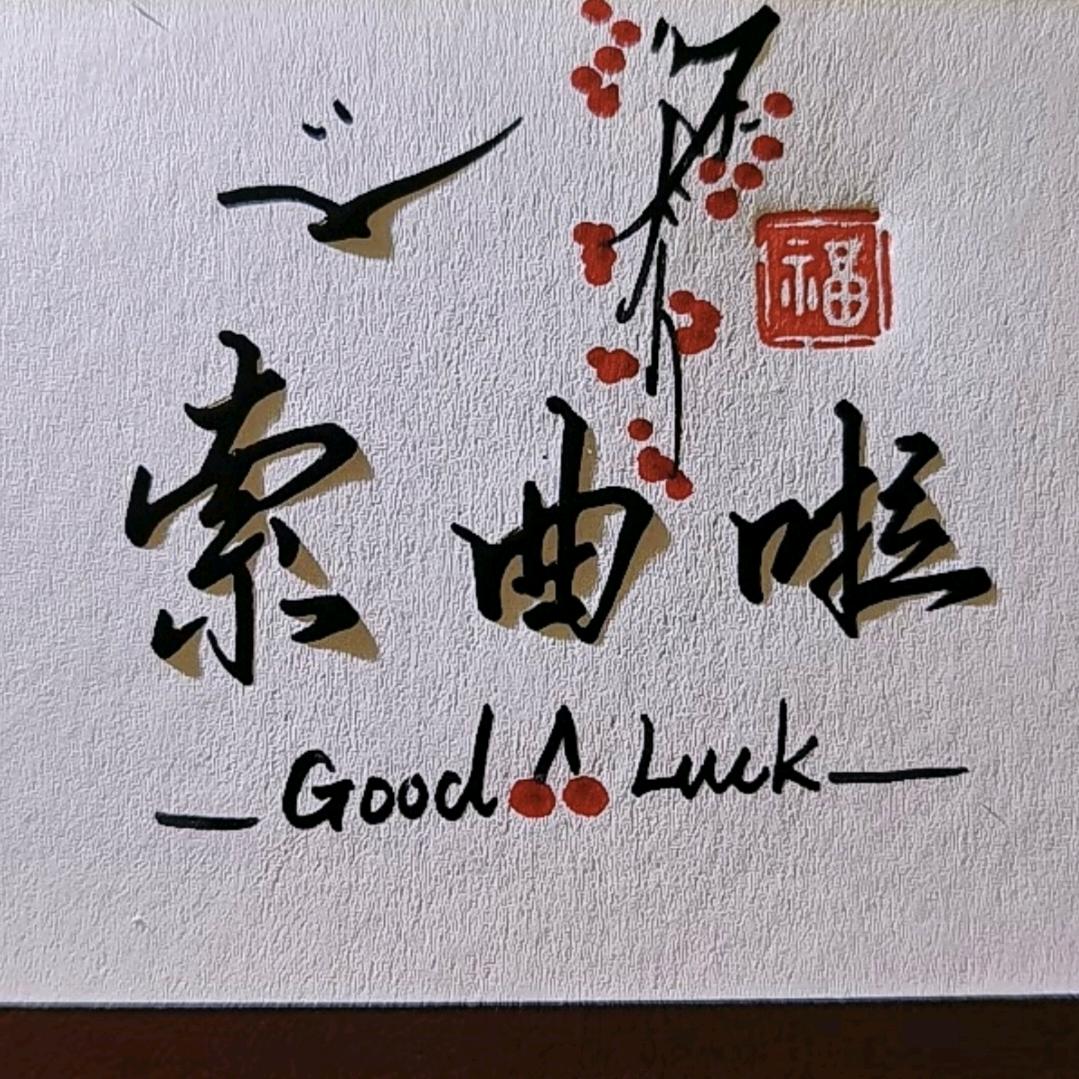 福
索曲啦
Good Luck